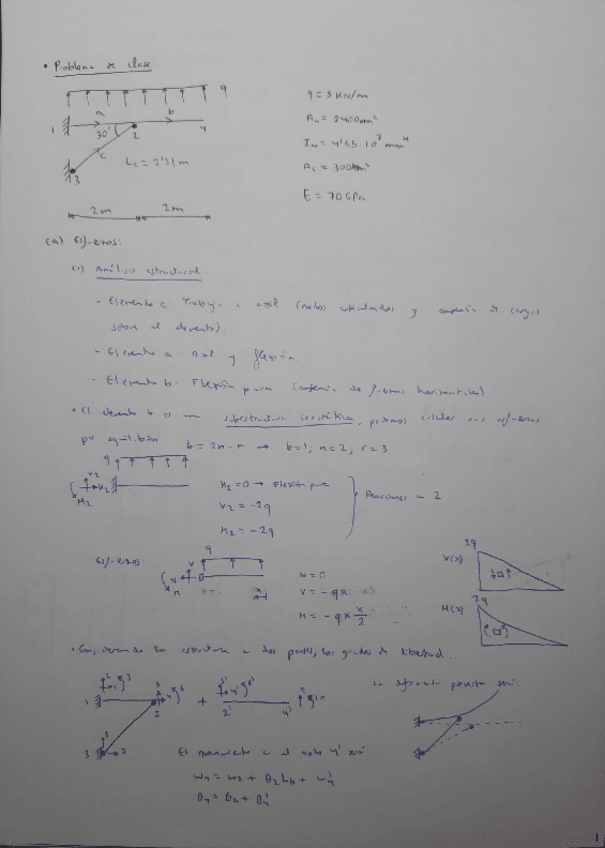 • Problema de clase
q
a
b
1
30°
2
4
c
Lc = 2'31 m
3
2m
2m
q = 5 KN/m
Aw = 2400mm²
Iw = 4'65·10⁷ mm⁴
Ac = 300mm²
E = 70 GPa
(a) Esfuerzos:
(i) Análisis estructural:
- Elemento c: Trabaja a axil (nodos articulados y ausencia de cargas
sobre el elemento).
- Elemento a: axil y flexión.
- Elemento b: Flexión pura (ausencia de fuerzas horizontales)
• El elemento b es una subestructura isostática, podemos calcular sus esfuerzos
por equilibrio b = 2n - r → b=1; n=2; r=3
q
V2
H2
M2
H2 = 0 → Flexión pura
V2 = -2q
M2 = -2q
Reacciones en 2
Esfuerzos:
q
V
N
M
x
N = 0
V = -qx
M = -qx x/2
V(x)
2q
M(x)
2q
• Considerando la estructura a dos partes, los grados de libertad:
1
2
3
+
2'
4'
La deformada prevista será:
El movimiento en el nodo 4' será:
w4 = w2 + θ2 Lb + w4'
θ4 = θ2 + θ4'
1